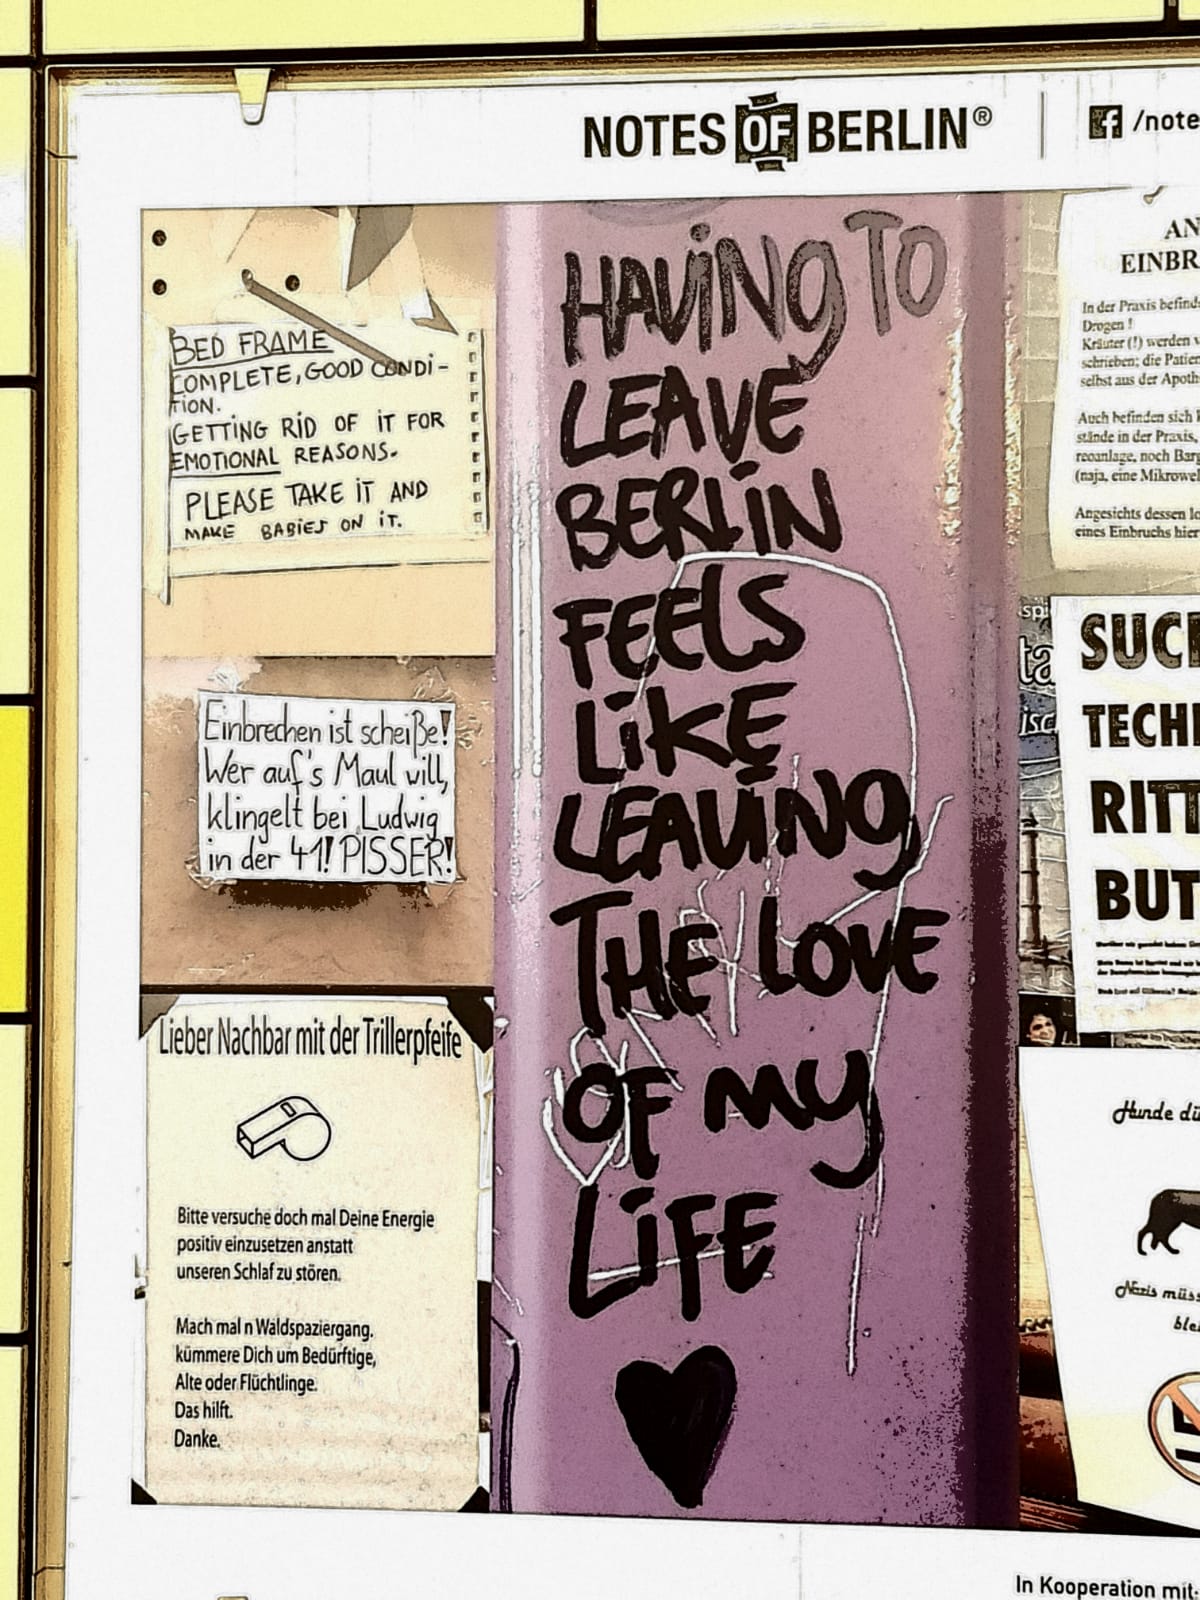 NOTES OF BERLIN®
/note
BED FRAME
COMPLETE, GOOD CONDI-
TION.
GETTING RID OF IT FOR
EMOTIONAL REASONS.
PLEASE TAKE IT AND
MAKE BABIES ON IT.
Einbrechen ist scheiße!
Wer auf's Maul will,
klingelt bei Ludwig
in der 41! PISSER!
Lieber Nachbar mit der Trillerpfeife
Bitte versuche doch mal Deine Energie
positiv einzusetzen anstatt
unseren Schlaf zu stören.
Mach mal n Waldspaziergang.
kümmere Dich um Bedürftige,
Alte oder Flüchtlinge.
Das hilft.
Danke.
HAViNG TO
LEAVE
BERLiN
FEELS
LiKE
LEAViNG
THE LOVE
OF MY
LiFE
AN
EINBR
In der Praxis befind
Drogen !
Kräuter (!) werden v
schrieben; die Patien
selbst aus der Apoth
Auch befinden sich k
stände in der Praxis,
reoanlage, noch Barg
(naja, eine Mikrowel
Angesichts dessen lo
eines Einbruchs hier
SUCH
TECH
RITT
BUT
Hunde dü
Nazis müss
blei
In Kooperation mit: